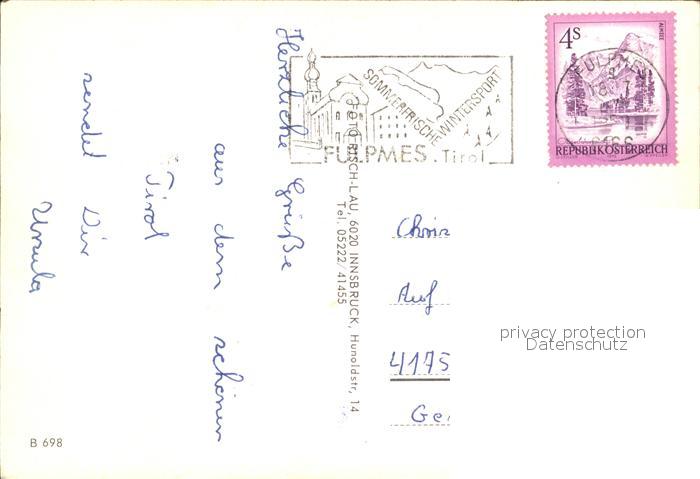 Herzliche Grüße
aus dem schönen
Tirol
sendet Dir
Ursula
B 698
FOTO RISCH-LAU, 6020 INNSBRUCK, Hunoldstr. 14
Tel. 05222/41455
SOMMERFRISCHE
WINTERSPORT
FULPMES . Tirol
4S
ALMSEE
FULPMES
REPUBLIK ÖSTERREICH
Auf
4175
privacy protection
Datenschutz